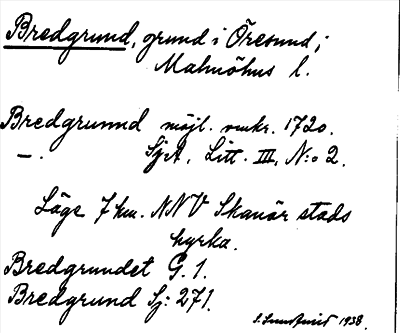 Bredgrund, grund i Öresund;
Malmöhus l.
Bredgrunnd möjl. omkr. 1720.
— . SjA, Litt. III, N:o 2.
Läge 7 km. NNV Skanör stads
kyrka.
Bredgrundet G. 1.
Bredgrund Sj: 271.
S. Lundquist 1938.